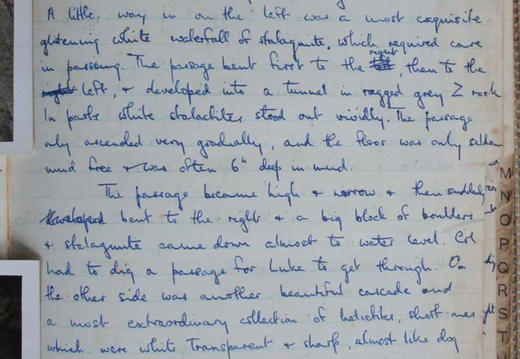 A little way in on the left was a most exquisite
glistening white waterfall of stalagmite, which required care
in passing. The passage bent first to the right, then to the
left, & developed into a tunnel in ragged grey Z rock
In parts white stalactites stood out vividly. The passage
only ascended very gradually, and the floor was only seldom
mud free & was often 6" deep in mud.
The passage became high & narrow & then suddenly
developed bent to the right & a big block of boulders
& stalagmite came down almost to water level. Col
had to dig a passage for Luke to get through. On
the other side was another beautiful cascade and
a most extraordinary collection of helictites, short ones
which were white transparent & sharp, almost like dog
M
N
O
P
Q
R
S
T